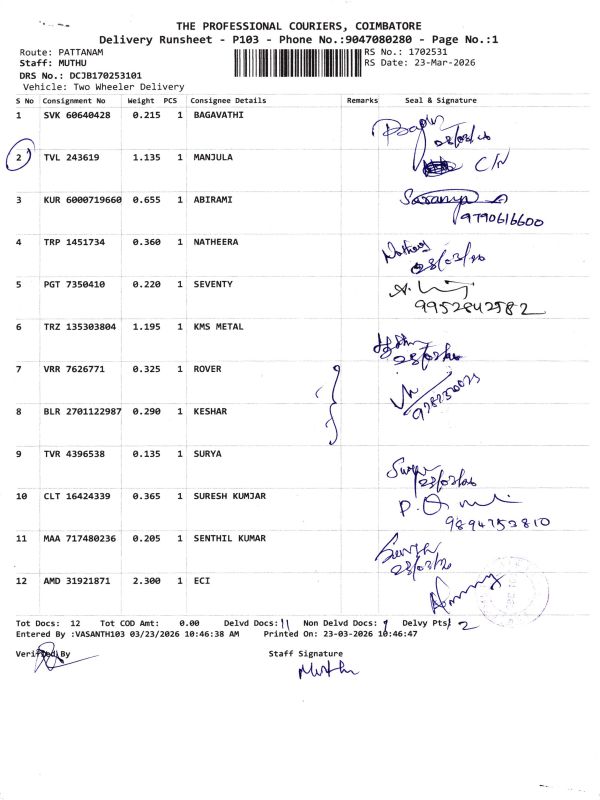 THE PROFESSIONAL COURIERS, COIMBATORE
Delivery Runsheet - P103 - Phone No.:9047080280 - Page No.:1
Route: PATTANAM RS No.: 1702531
Staff: MUTHU RS Date: 23-Mar-2026
DRS No.: DCJB170253101
Vehicle: Two Wheeler Delivery
S No Consignment No Weight PCS Consignee Details Remarks Seal & Signature
1 SVK 60640428 0.215 1 BAGAVATHI
2 TVL 243619 1.135 1 MANJULA C/N
3 KUR 6000719660 0.655 1 ABIRAMI Saranya
9790616600
4 TRP 1451734 0.360 1 NATHEERA
5 PGT 7350410 0.220 1 SEVENTY
9952842582
6 TRZ 135303804 1.195 1 KMS METAL
7 VRR 7626771 0.325 1 ROVER
8 BLR 2701122987 0.290 1 KESHAR
9 TVR 4396538 0.135 1 SURYA
10 CLT 16424339 0.365 1 SURESH KUMJAR
9894752810
11 MAA 717480236 0.205 1 SENTHIL KUMAR
12 AMD 31921871 2.300 1 ECI
Tot Docs: 12 Tot COD Amt: 0.00 Delvd Docs: 11 Non Delvd Docs: 1 Delvy Pts: 2
Entered By :VASANTH103 03/23/2026 10:46:38 AM Printed On: 23-03-2026 10:46:47
Verified By Staff Signature
Muthu